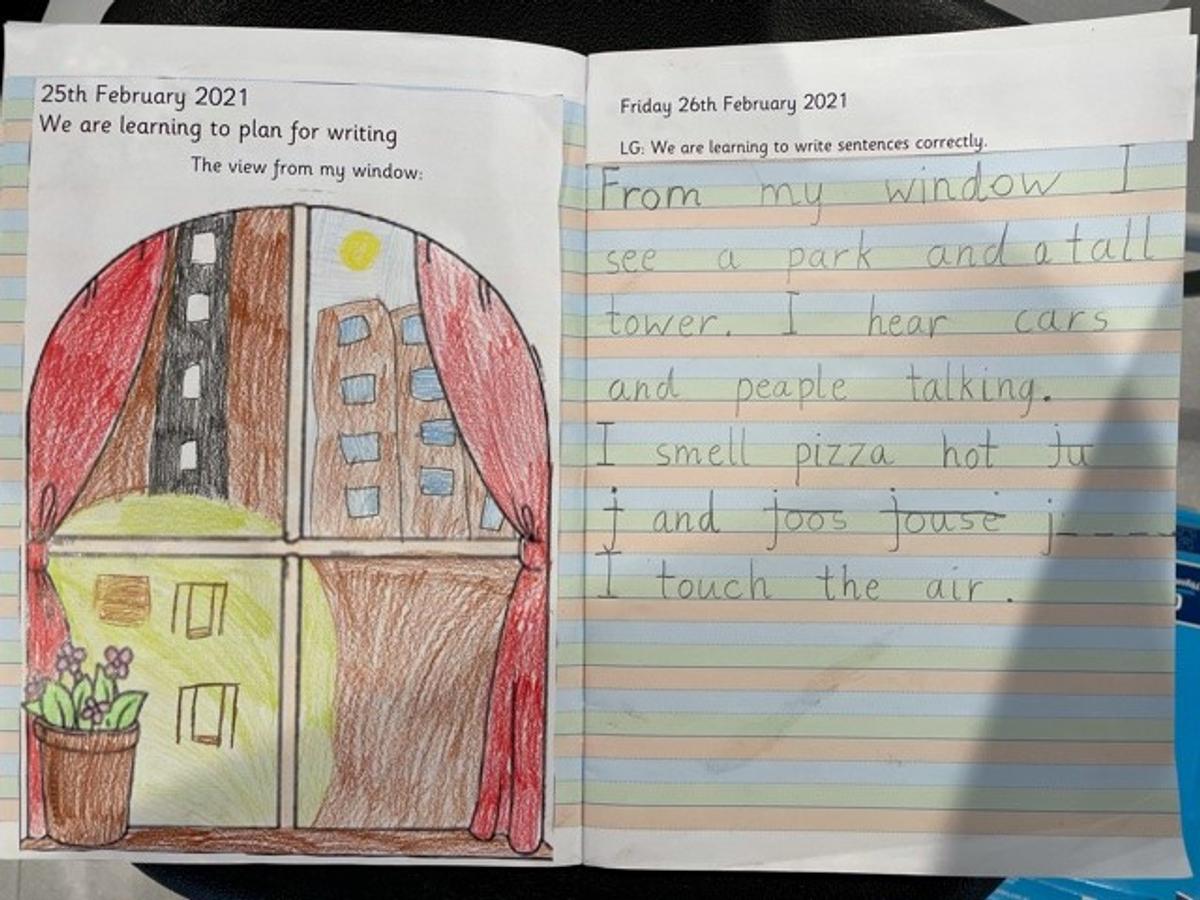 25th February 2021
We are learning to plan for writing
The view from my window:
Friday 26th February 2021
LG: We are learning to write sentences correctly.
From my window I
see a park and a tall
tower. I hear cars
and peaple talking.
I smell pizza hot ju
j and joos jouse j_ _ _ _
I touch the air.